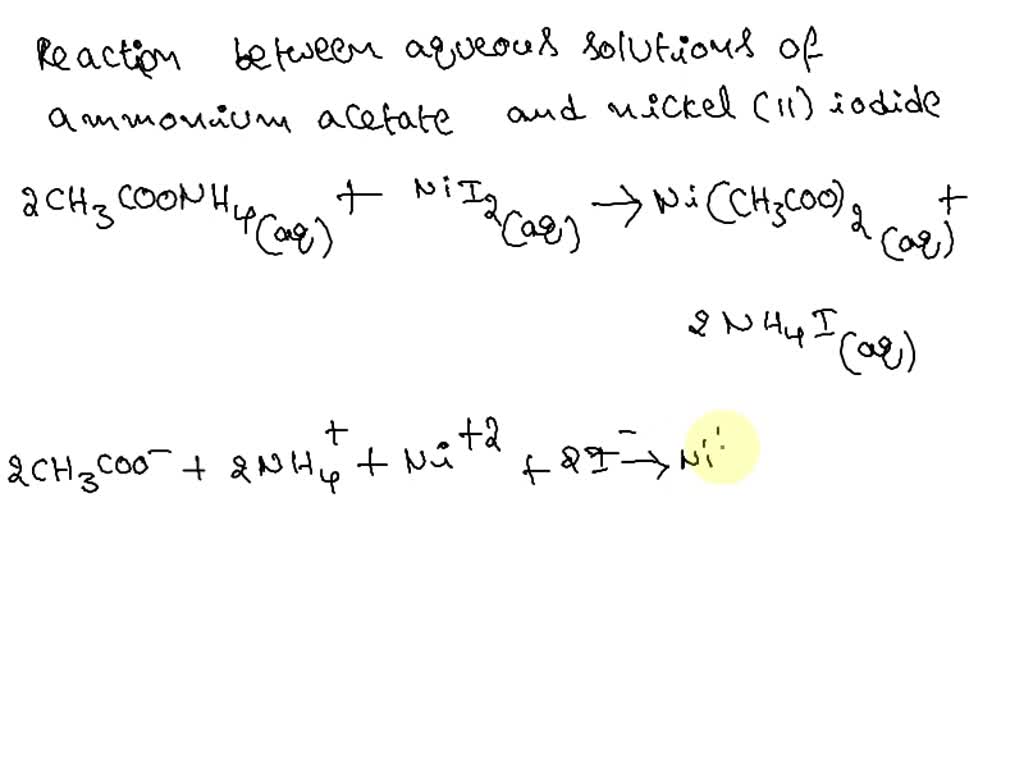 Reaction between aqueous solutions of
ammonium acetate and nickel (II) iodide
2CH₃COONH₄(aq) + NiI₂(aq) → Ni(CH₃COO)₂(aq) +
2NH₄I(aq)
2CH₃COO⁻ + 2NH₄⁺ + Ni⁺² + 2I⁻ → Ni